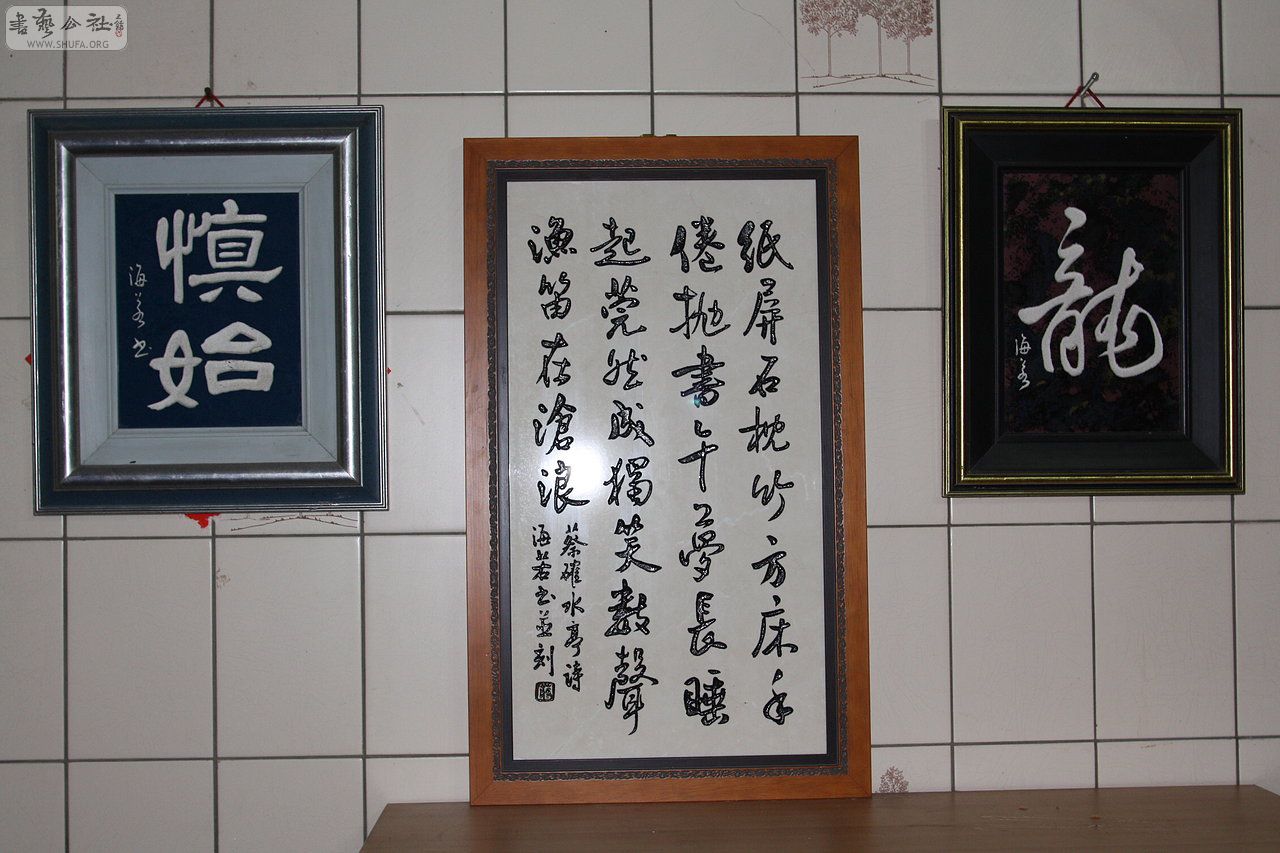 書藝公社
WWW.SHUFA.ORG
慎始
海若书
紙屏石枕竹方床手
倦抛書午夢長睡
起莞然成獨笑數聲
漁笛在滄浪
蔡確水亭詩
海若书並刻
龍
海若